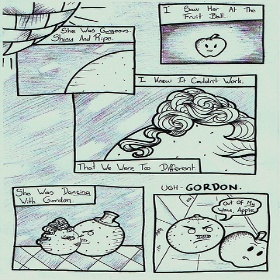 I Saw Her At The
Fruit Ball.
She Was Gorgeous.
Shiny And Ripe.
I Knew It Couldn't Work.
That We Were Too Different
She Was Dancing
With Gordon.
UGH. GORDON.
Out Of My
Way, Apple.